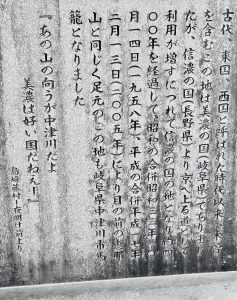 古代、東国・西国と呼ばれた時代以来、本宮
を含むこの地は美濃の国(岐阜県)でありまし
たが、信濃の国(長野県)より京へ上る旅として
利用が増すにつれて信濃の国の地となり約
〇〇年を経過して、昭和の合併昭和三三年
月一四日(一九五八年)、平成の合併平成一七年
二月一三日(二〇〇五年)により目の前の恵那
山と同じく足元のこの地も岐阜県中津川市馬
籠となりました
『あの山の向うが中津川だよ
美濃は好い国だねえ!』
島崎藤村「夜明け前」より